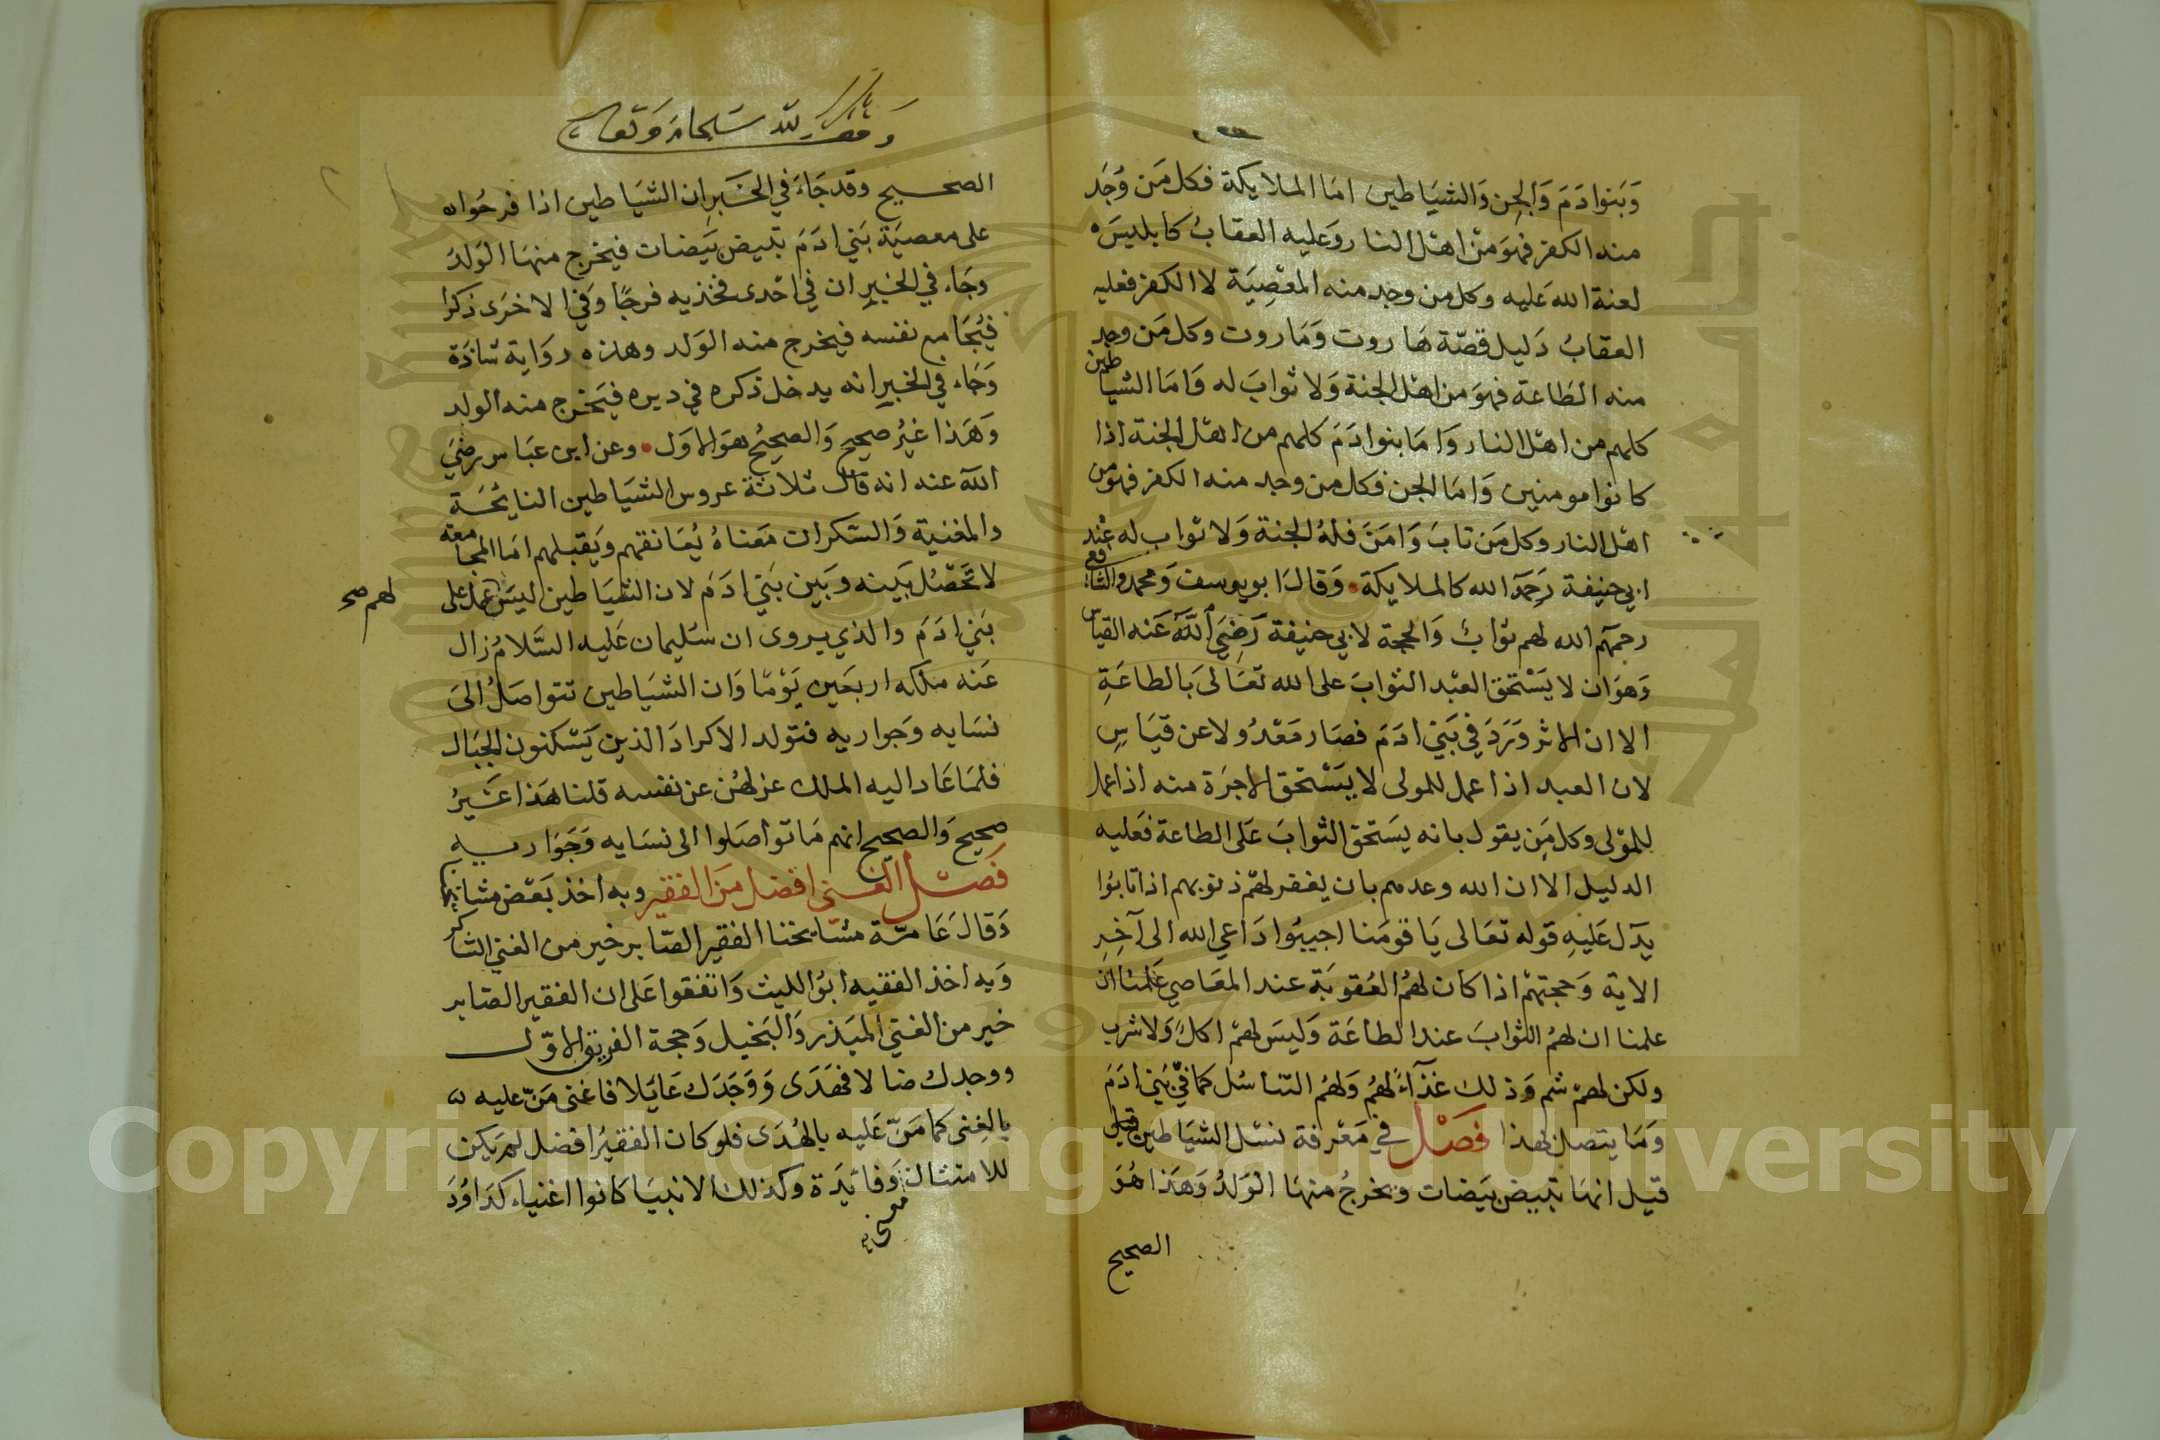 وَبَنوا دَمَ وَالجِن وَالشيَاطين امَا الملايكة فكل مَن وُجَد
منه الكفر فهوَ منْ اهل النار وَعليه العقابُ كابليسَ
لعنة الله عَليه وكل من وجد منه المعْصِيَة لا الكفر فعليه
العقابُ دَليل قصّة هَاروت وَمَاروت وكل مَن وجد
منه الطَاعة فهوَ من اهل الجنة وَلا ثوابَ له وَامَا الشياطين
كلهم من اهل النار وَامَا بنوا دَمَ كلهم من اهل الجنة اذا
كانوا مومنين وَامَا الجن فكل من وجد منه الكفر فهو من
اهل النار وكل مَن تابَ وَامَنَ فلهُ الجنة وَلا ثواب له عند
ابي حنيفة رَحِمَه الله كالملايكة وَقالَ ابو يوسف وَمحمد والشافعي
رحمهم الله لهم ثوابٌ وَالحجة لابي حنيفة رَضِيَ اللّه عَنه القياس
وَهوَ ان لا يَسْتحق العبْد الثوابَ على الله تعَالىَ بَالطاعَةِ
الا ان الاثر وَرَدَ في بَني ادَمَ فصَار مَعْدُولا عن قيَاسِ
لان العبد اذا عمل للمولى لا يَسْتحق الاجرَة منه اذا عمل
للمَوْلى وكل مَن يقول بانه يسَتحق الثوابَ عَلى الطاعة فعَليه
الدليل الا ان الله وعدهم بان يغفر لهمْ ذنوبهم اذا تابوُا
يدَل عَليهِ قوله تعَالى يَا قومَنا اجيبُوا دَاعي الله الى آخِرِ
الاية وَحجتهمْ اذا كان لهُم العُقوبَة عند المعَاصي عَلمنا ان
علمنا ان لهمُ الثوابَ عند الطاعَة وَليسَ لهمْ اكل وَلا شرب
ولكن لهمْ شم وَذلك غذآءٌ لهُم وَلهُم التناسُل كما في بَني ادَمَ
وَمَا يتصل بهذا فَصَلْ في مَعْرفة نسْل الشيَاطين قيل
قيل انهَا تبيض بَيَضات وَيخرجُ منهَا الوَلدُ وَهَذا هُوَ
الصحيح
وقف لله سبحانه وتعالى
الصحيح وقد جَاءَ في الخبَر ان الشيَاطين اذا فرحُوا
على معصيَة بَني ادَمَ تبيض بَيَضات فيخرج منهَا الوَلدُ
وجَاء في الخبرِ ان في احْدى فخذيه فرجًا وَفي الاخرَى ذكرا
فيُجَامع نفسه فيخرج منه الوَلد وهذه روَاية شاذة
وَجَاء في الخبرِ انه يدخل ذكره في دبره فيَخرج منه الولد
وَهَذا غيُر صَحيح وَالصحيُح هوَ الاوَل وعن ابن عبَاس رضيَ
اللّه عنه انه قال ثلاثة عروس الشيَاطين النايحَة
والمغنية وَالسَكران مَعناهُ يُعَانقهم ويَقبلهم امَا المجامعة
لا تَحَصُل بَينه وبَين بَني ادَمَ لان الشيَاطين ليسَ عمل على
لهم صح
بَني ادَمَ والذي يروى ان سُليمان عَليه السَّلامُ زال
عَنه ملكه اربعَين يَوْمًا وَان الشيَاطين تتواصَلُ الىَ
نسَايه وَجواريه فتولد الاكرادَ الذين يَسْكنون الجبَال
فلمَا عَاد اليه الملك عزلهُن عن نفسه قلنا هَذا غَيرُ
صحيحَ وَالصحيح انهم مَا تواصَلوا الى نسَايه وَجَوَاريه
فَصَلْ الغنى افضل مَن الفقير وبه اخذ بَعْض مشايخنا
وَقالَ عَامَّة مَشايخنا الفقير الصَابر خير من الغني الشاكر
وَبه اخذ الفقيه ابوُ الليث وَاتفقوا عَلى ان الفقير الصَابر
خير من الغني المبَذر وَالبَخيل وَحجة الفريق الاوّل
ووجدك ضالا فهَدَى وَوَجَدَك عَايَلا فاغنى مَنّ عليه
بالغِنى كما مَنّ عَليه بالهُدَى فلو كان الفقيُر افضل لمَ يَكن
للامتنان وَفايَدَة وكذلك الانبيَا كانوا اغنياء كدَاوُدَ